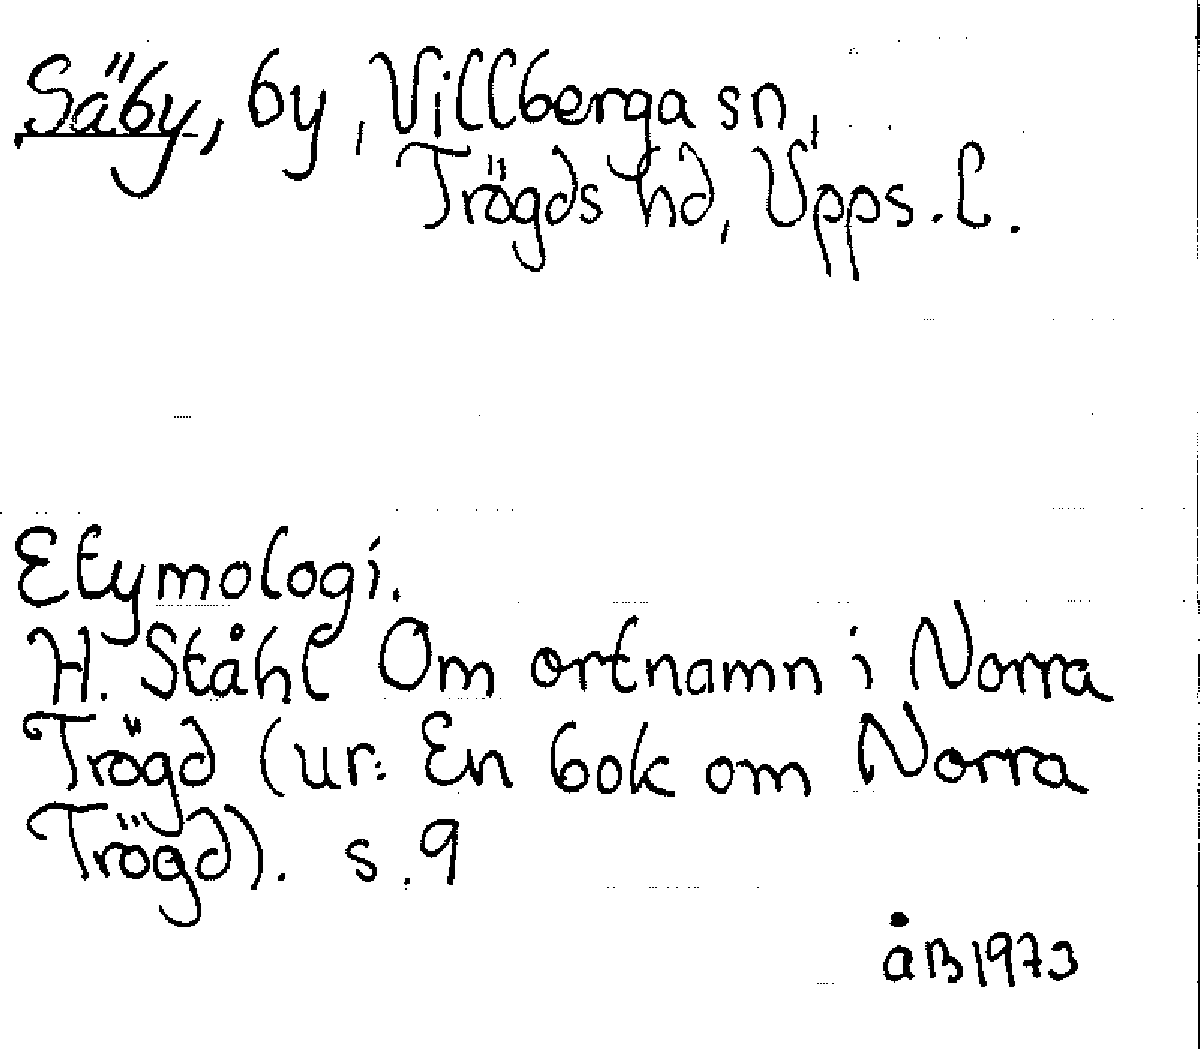 Säby, by, Villberga sn,
Trögds hd, Upps. l.
Etymologi.
H. Ståhl Om ortnamn i Norra
Trögd (ur: En bok om Norra
Trögd). s. 9
åB 1973